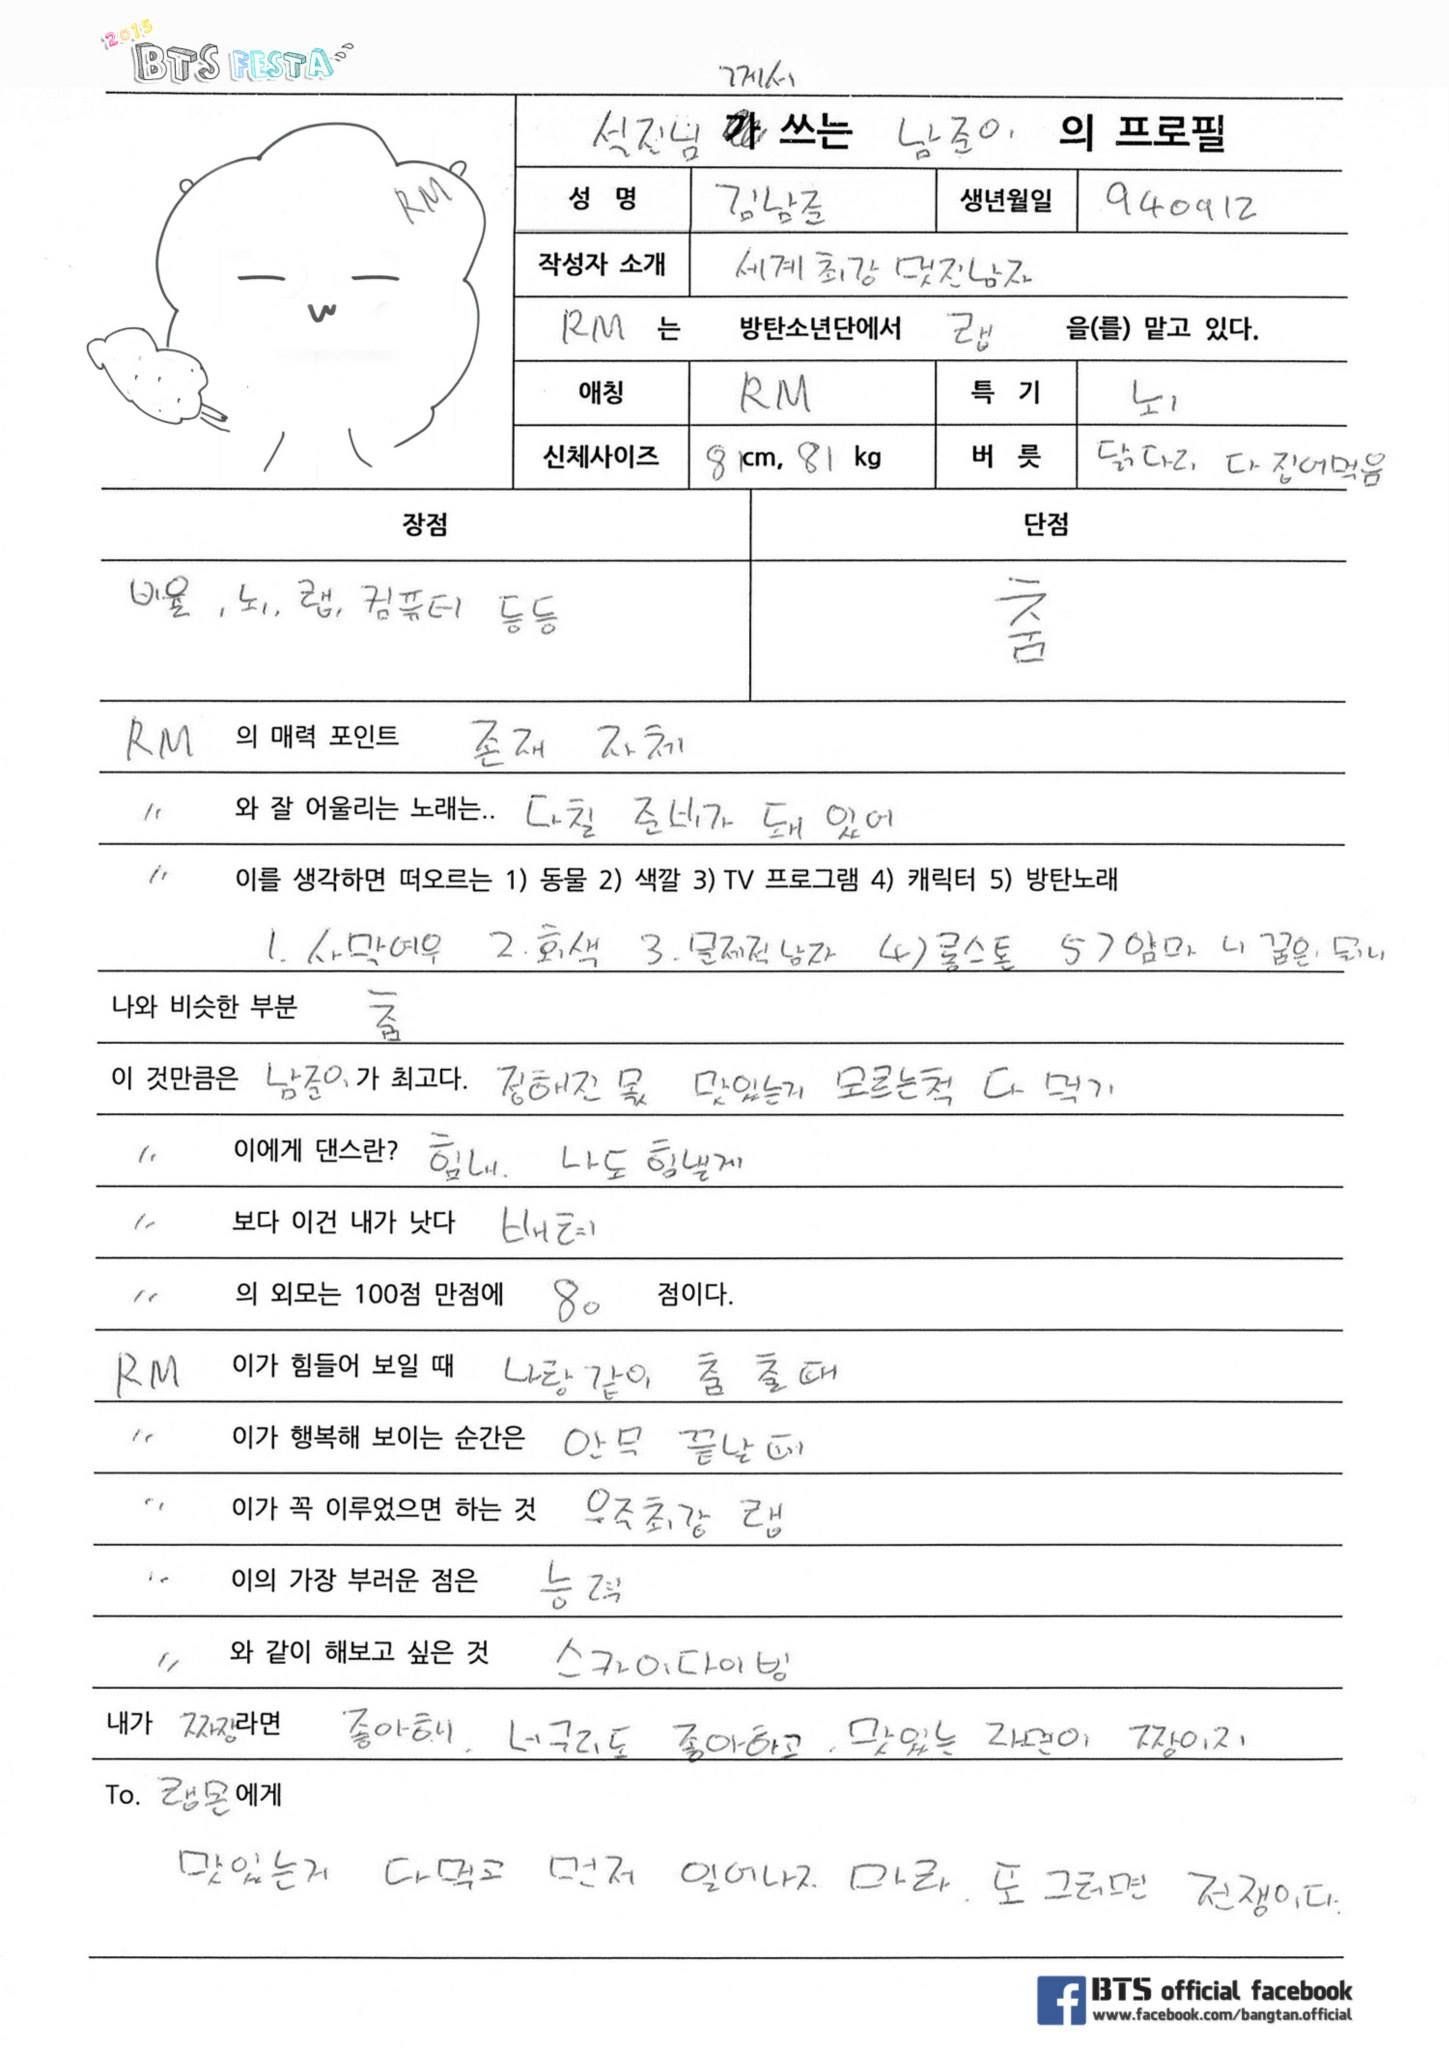 2015
BTS FESTA
께서
석진님 가 쓰는 남준이 의 프로필
RM
성 명 김남준 생년월일 940912
작성자 소개 세계최강 멋진남자
RM 는 방탄소년단에서 랩 을(를) 맡고 있다.
애칭 RM 특 기 뇌
신체사이즈 81cm, 81 kg 버 릇 닭다리 다 집어먹음
장점 단점
비율, 뇌, 랩, 컴퓨터 등등 춤
RM 의 매력 포인트 존재 자체
〃 와 잘 어울리는 노래는.. 다칠 준비가 돼 있어
〃 이를 생각하면 떠오르는 1) 동물 2) 색깔 3) TV 프로그램 4) 캐릭터 5) 방탄노래
1. 사막여우 2. 회색 3. 문제적남자 4) 롱스톤 5) 얌마 니 꿈은 뭐니
나와 비슷한 부분 춤
이 것만큼은 남준이가 최고다. 정해진 몫 맛있는거 모르는척 다 먹기
〃 이에게 댄스란? 힘내. 나도 힘낼게
〃 보다 이건 내가 낫다 배려
〃 의 외모는 100점 만점에 80 점이다.
RM 이가 힘들어 보일 때 나랑같이 춤 출때
〃 이가 행복해 보이는 순간은 안무 끝날때
〃 이가 꼭 이루었으면 하는 것 우주최강 랩
〃 이의 가장 부러운 점은 능력
〃 와 같이 해보고 싶은 것 스카이다이빙
내가 짜장라면 좋아해. 너구리도 좋아하고. 맛있는 라면이 짱이지
To. 랩몬에게
맛있는거 다먹고 먼저 일어나지 마라. 또 그러면 전쟁이다.
BTS official facebook
www.facebook.com/bangtan.official